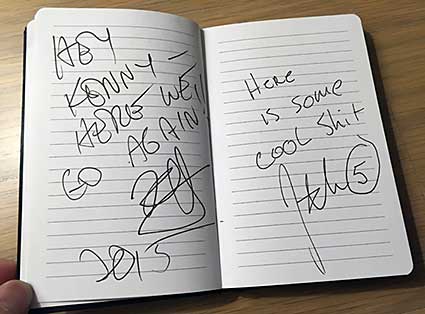 HEY
KENNY —
HERE WE!!
GO AGAIN
2015
Here
is some
cool shit
5